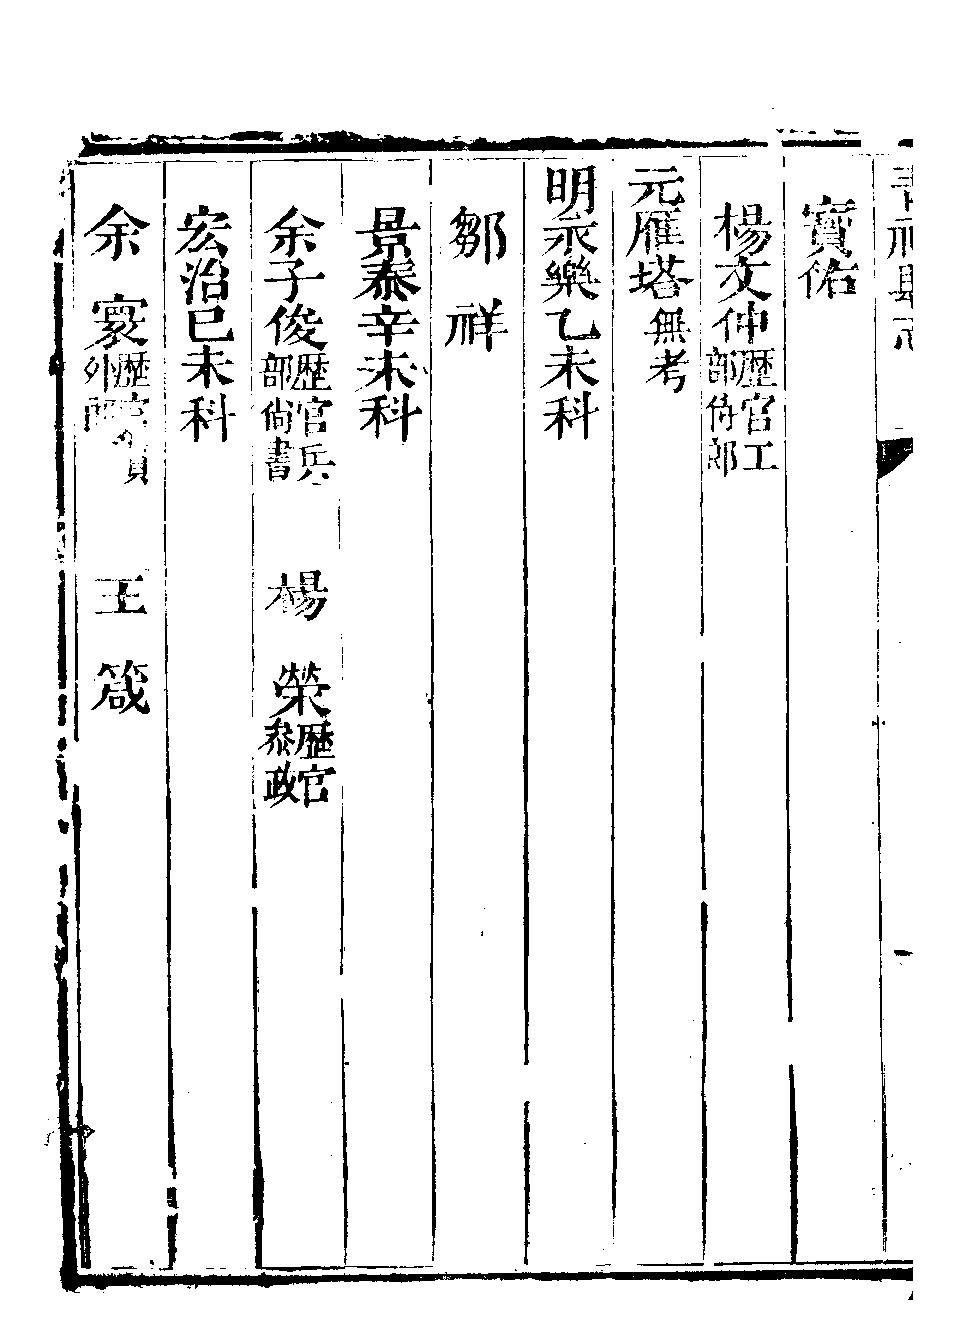 青神縣志
寶佑
楊文仲歷官工部侍郎
元雁塔無考
明永樂乙未科
鄒祥
景泰辛未科
余子俊歷官兵部尚書 楊榮歷官叅政
宏治巳未科
余寰歷官員外郎 王箴